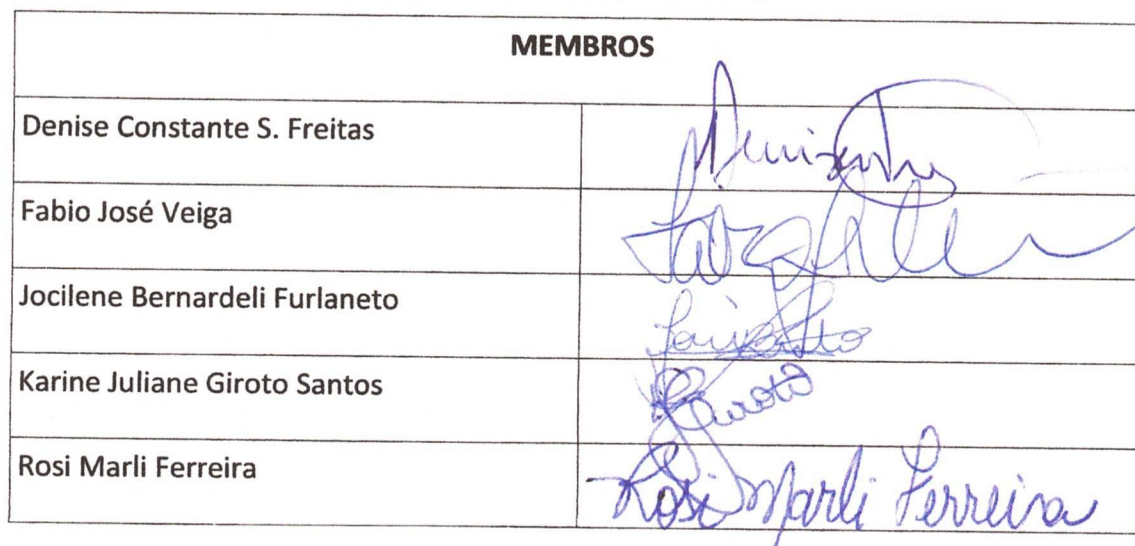 MEMBROS
Denise Constante S. Freitas
Fabio José Veiga
Jocilene Bernardeli Furlaneto
Karine Juliane Giroto Santos
Rosi Marli Ferreira
Rosi Marli Ferreira